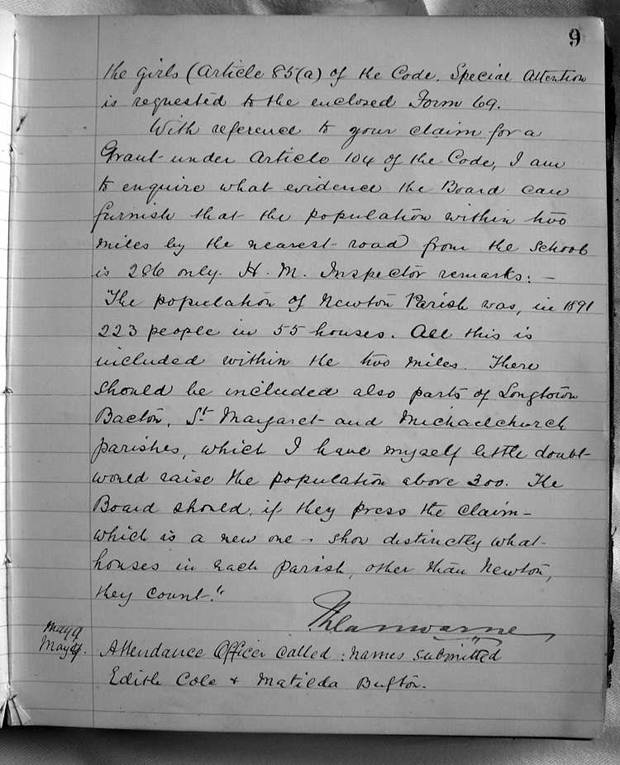 9
the girls (Article 85(a) of the Code. Special Attention
is requested to the enclosed Form 69.
With reference to your claim for a
Grant under Article 104 of the Code, I am
to enquire what evidence the Board can
furnish that the population within two
miles by the nearest road from the School
is 286 only. H. M. Inspector remarks: -
The population of Newton Parish was, in 1891
223 people in 55 houses. All this is
included within the two miles. There
should be included also parts of Longtown
Bacton, St Margaret and Michaelchurch
parishes, which I have myself little doubt
would raise the population above 300. The
Board should, if they press the claim -
which is a new one - show distinctly what
houses in each parish, other than Newton,
they count."
May 9
May Attendance Officer called: names submitted
Edith Cole & Matilda Bufton.